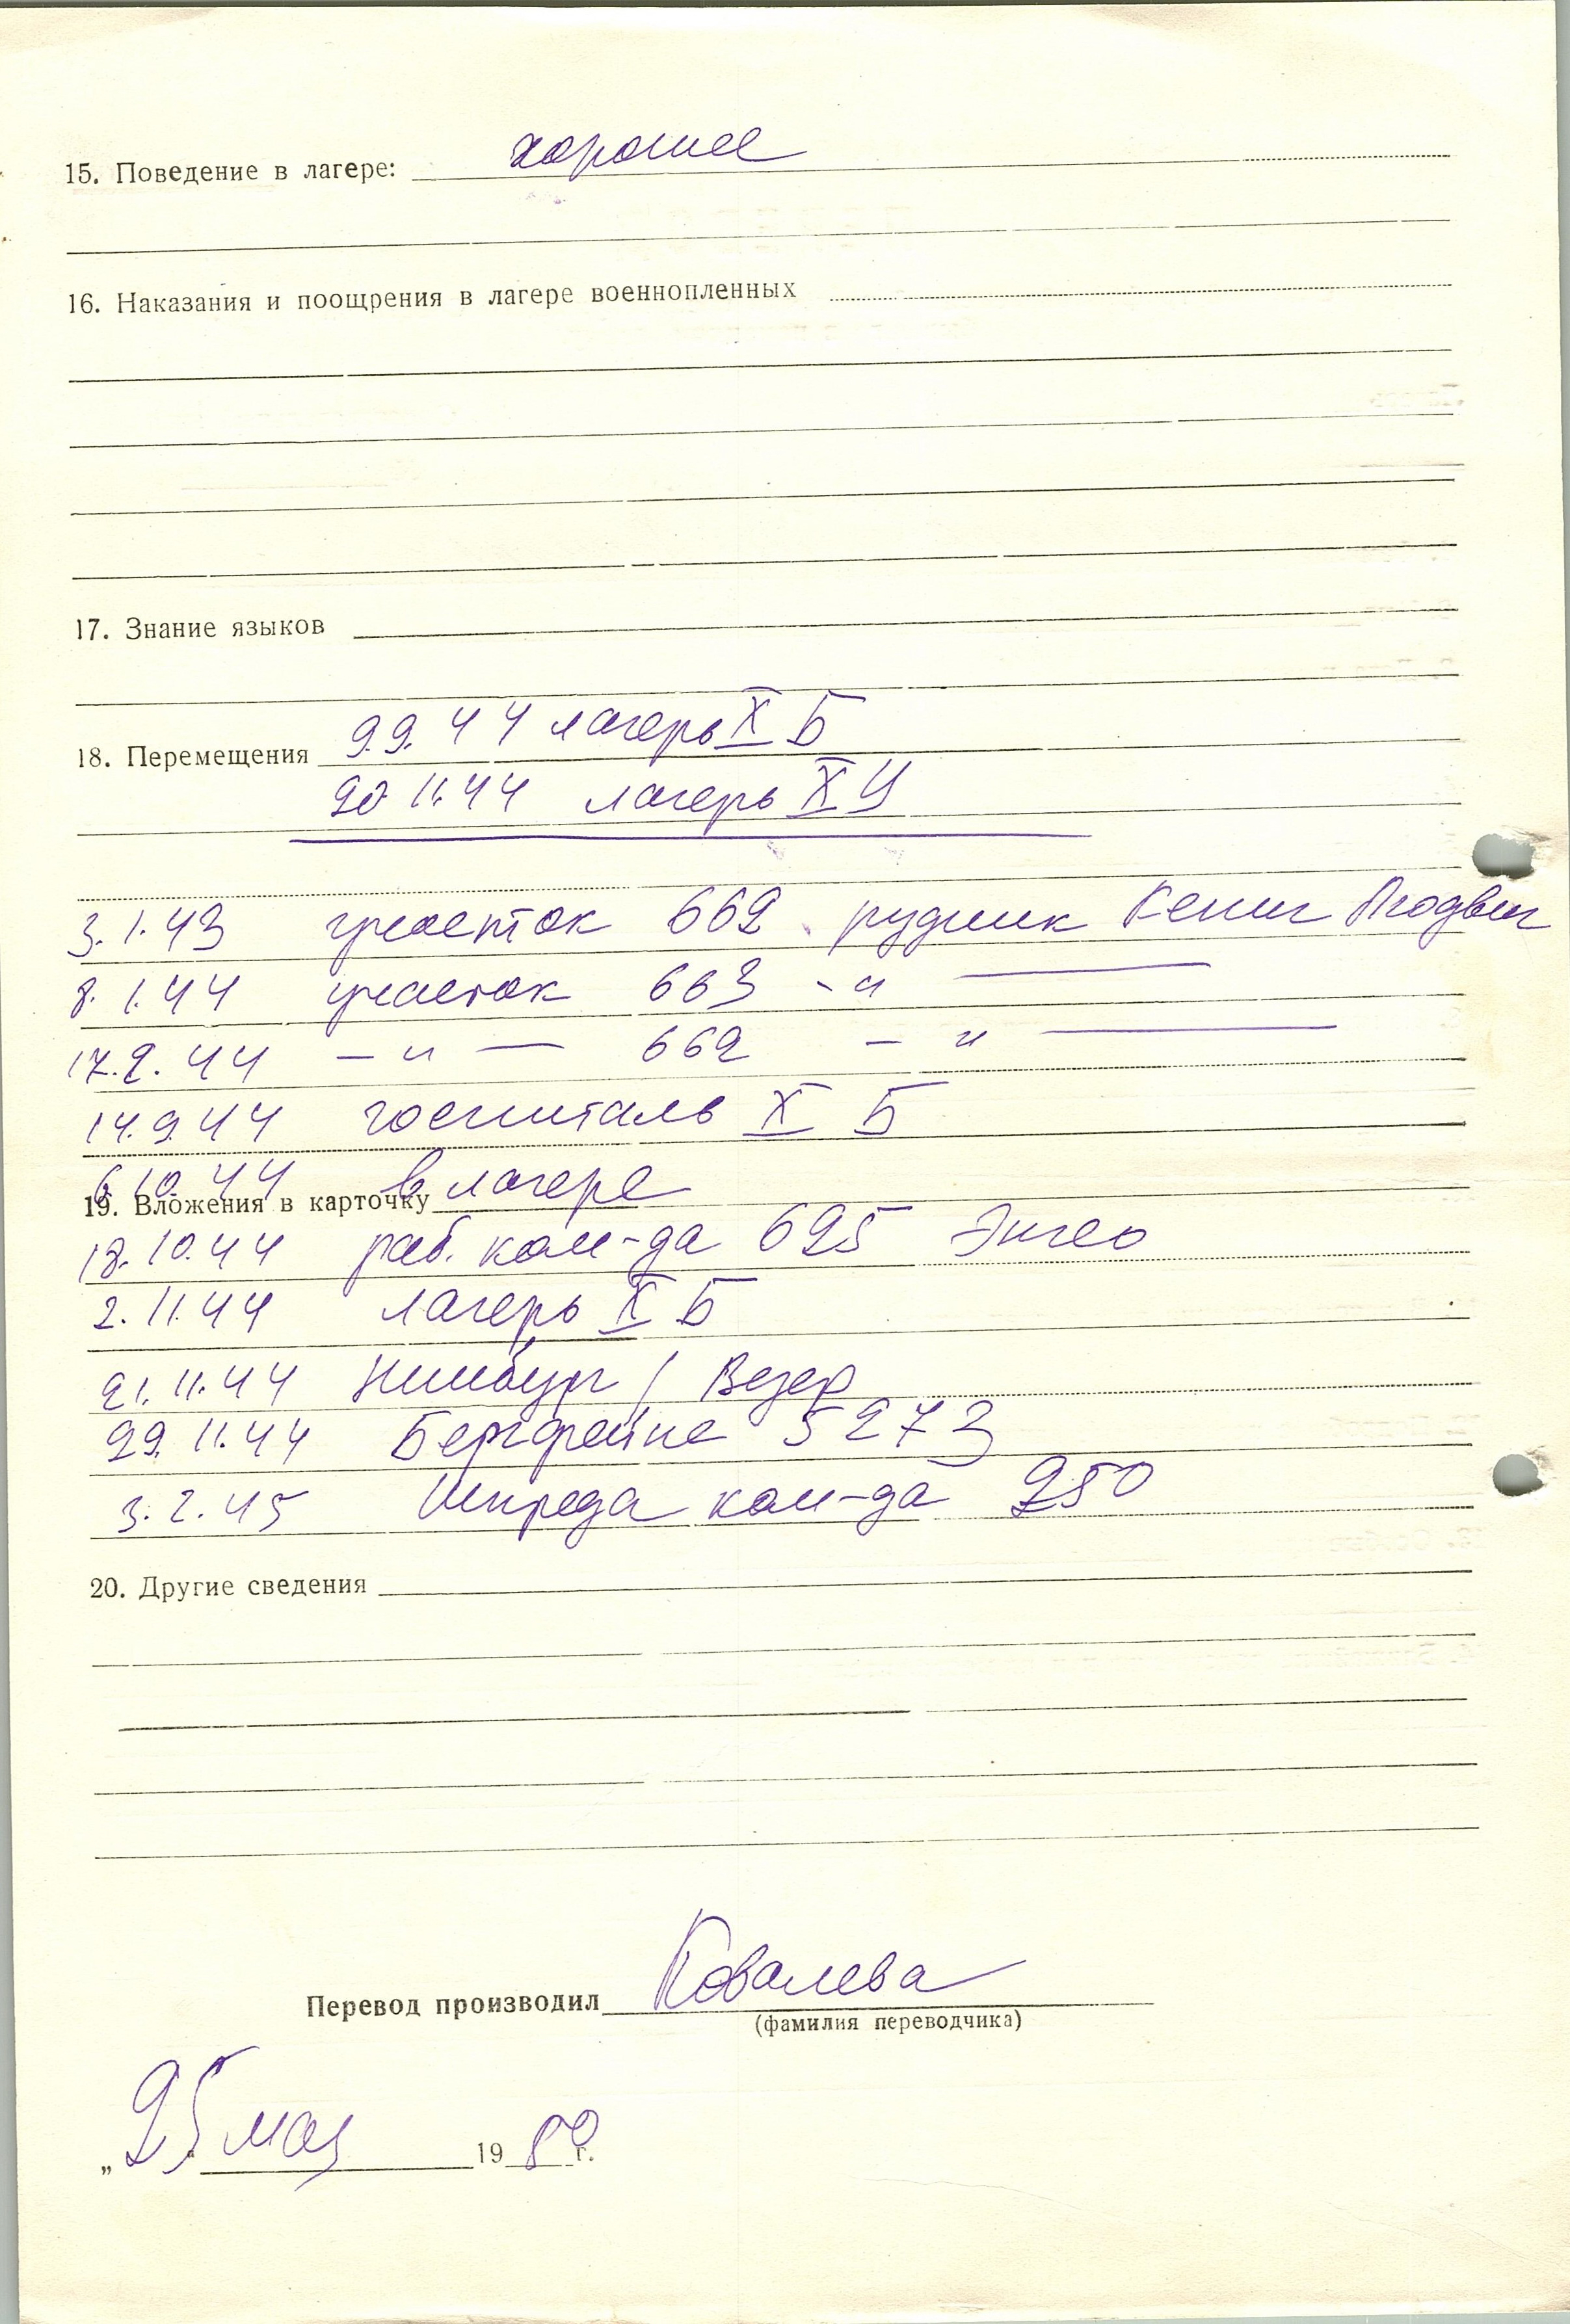 15. Поведение в лагере: хорошее
16. Наказания и поощрения в лагере военнопленных
17. Знание языков
18. Перемещения 9.9.44 лагерь X Б
20 11.44 лагерь X Ц
3.1.43 участок 662 рудник Кениг Людвиг
8.1.44 участок 663 - " —
17.2.44 — " — 662 — " —
14.9.44 госпиталь X Б
6.10.44 в лагере
19. Вложения в карточку
18.10.44 раб. ком-да 695
2.11.44 лагерь X Б
21.11.44 Нинбург / Везер
29.11.44 5273
3.2.45 ком-да 250
20. Другие сведения
Перевод производил Ковалева
(фамилия переводчика)
„25" мая 1980 г.